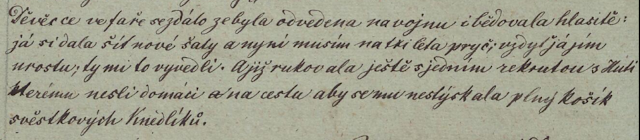 Děvěcce ve faře se zdálo že byla odvedena na vojnu i bědovala hlasitě:
já si dala šít nové šaty a nyní musím na tři leta pryč; vzdyť já jím
urostu; ty mi to vyvedli. A již rukovala ještě s jedním rekrutou s Huti
kterému nesli domáci a na cestu aby se mu nestýskala plný košík
svěstkových knedlíků.